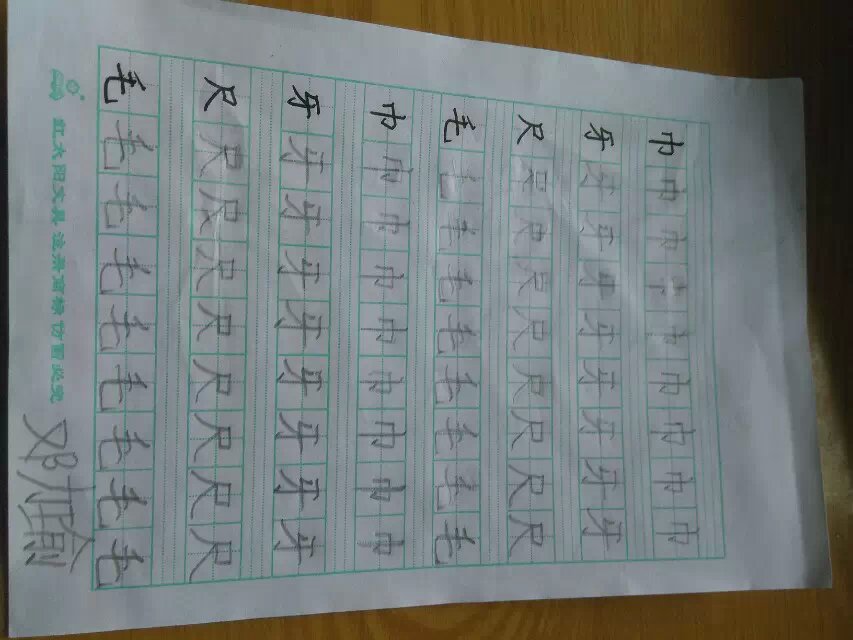 巾巾巾巾巾巾巾巾巾
牙牙牙牙牙牙牙牙牙
尺尺尺尺尺尺尺尺尺
毛毛毛毛毛毛毛毛毛
巾巾巾巾巾巾巾巾巾
牙牙牙牙牙牙牙牙牙
尺尺尺尺尺尺尺尺尺
毛毛毛毛毛毛毛毛毛
红太阳文具 仿冒必究
邓加